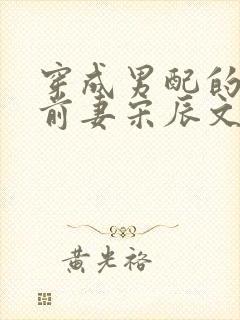 穿成男配的
前妻宋辰文
黄光裕